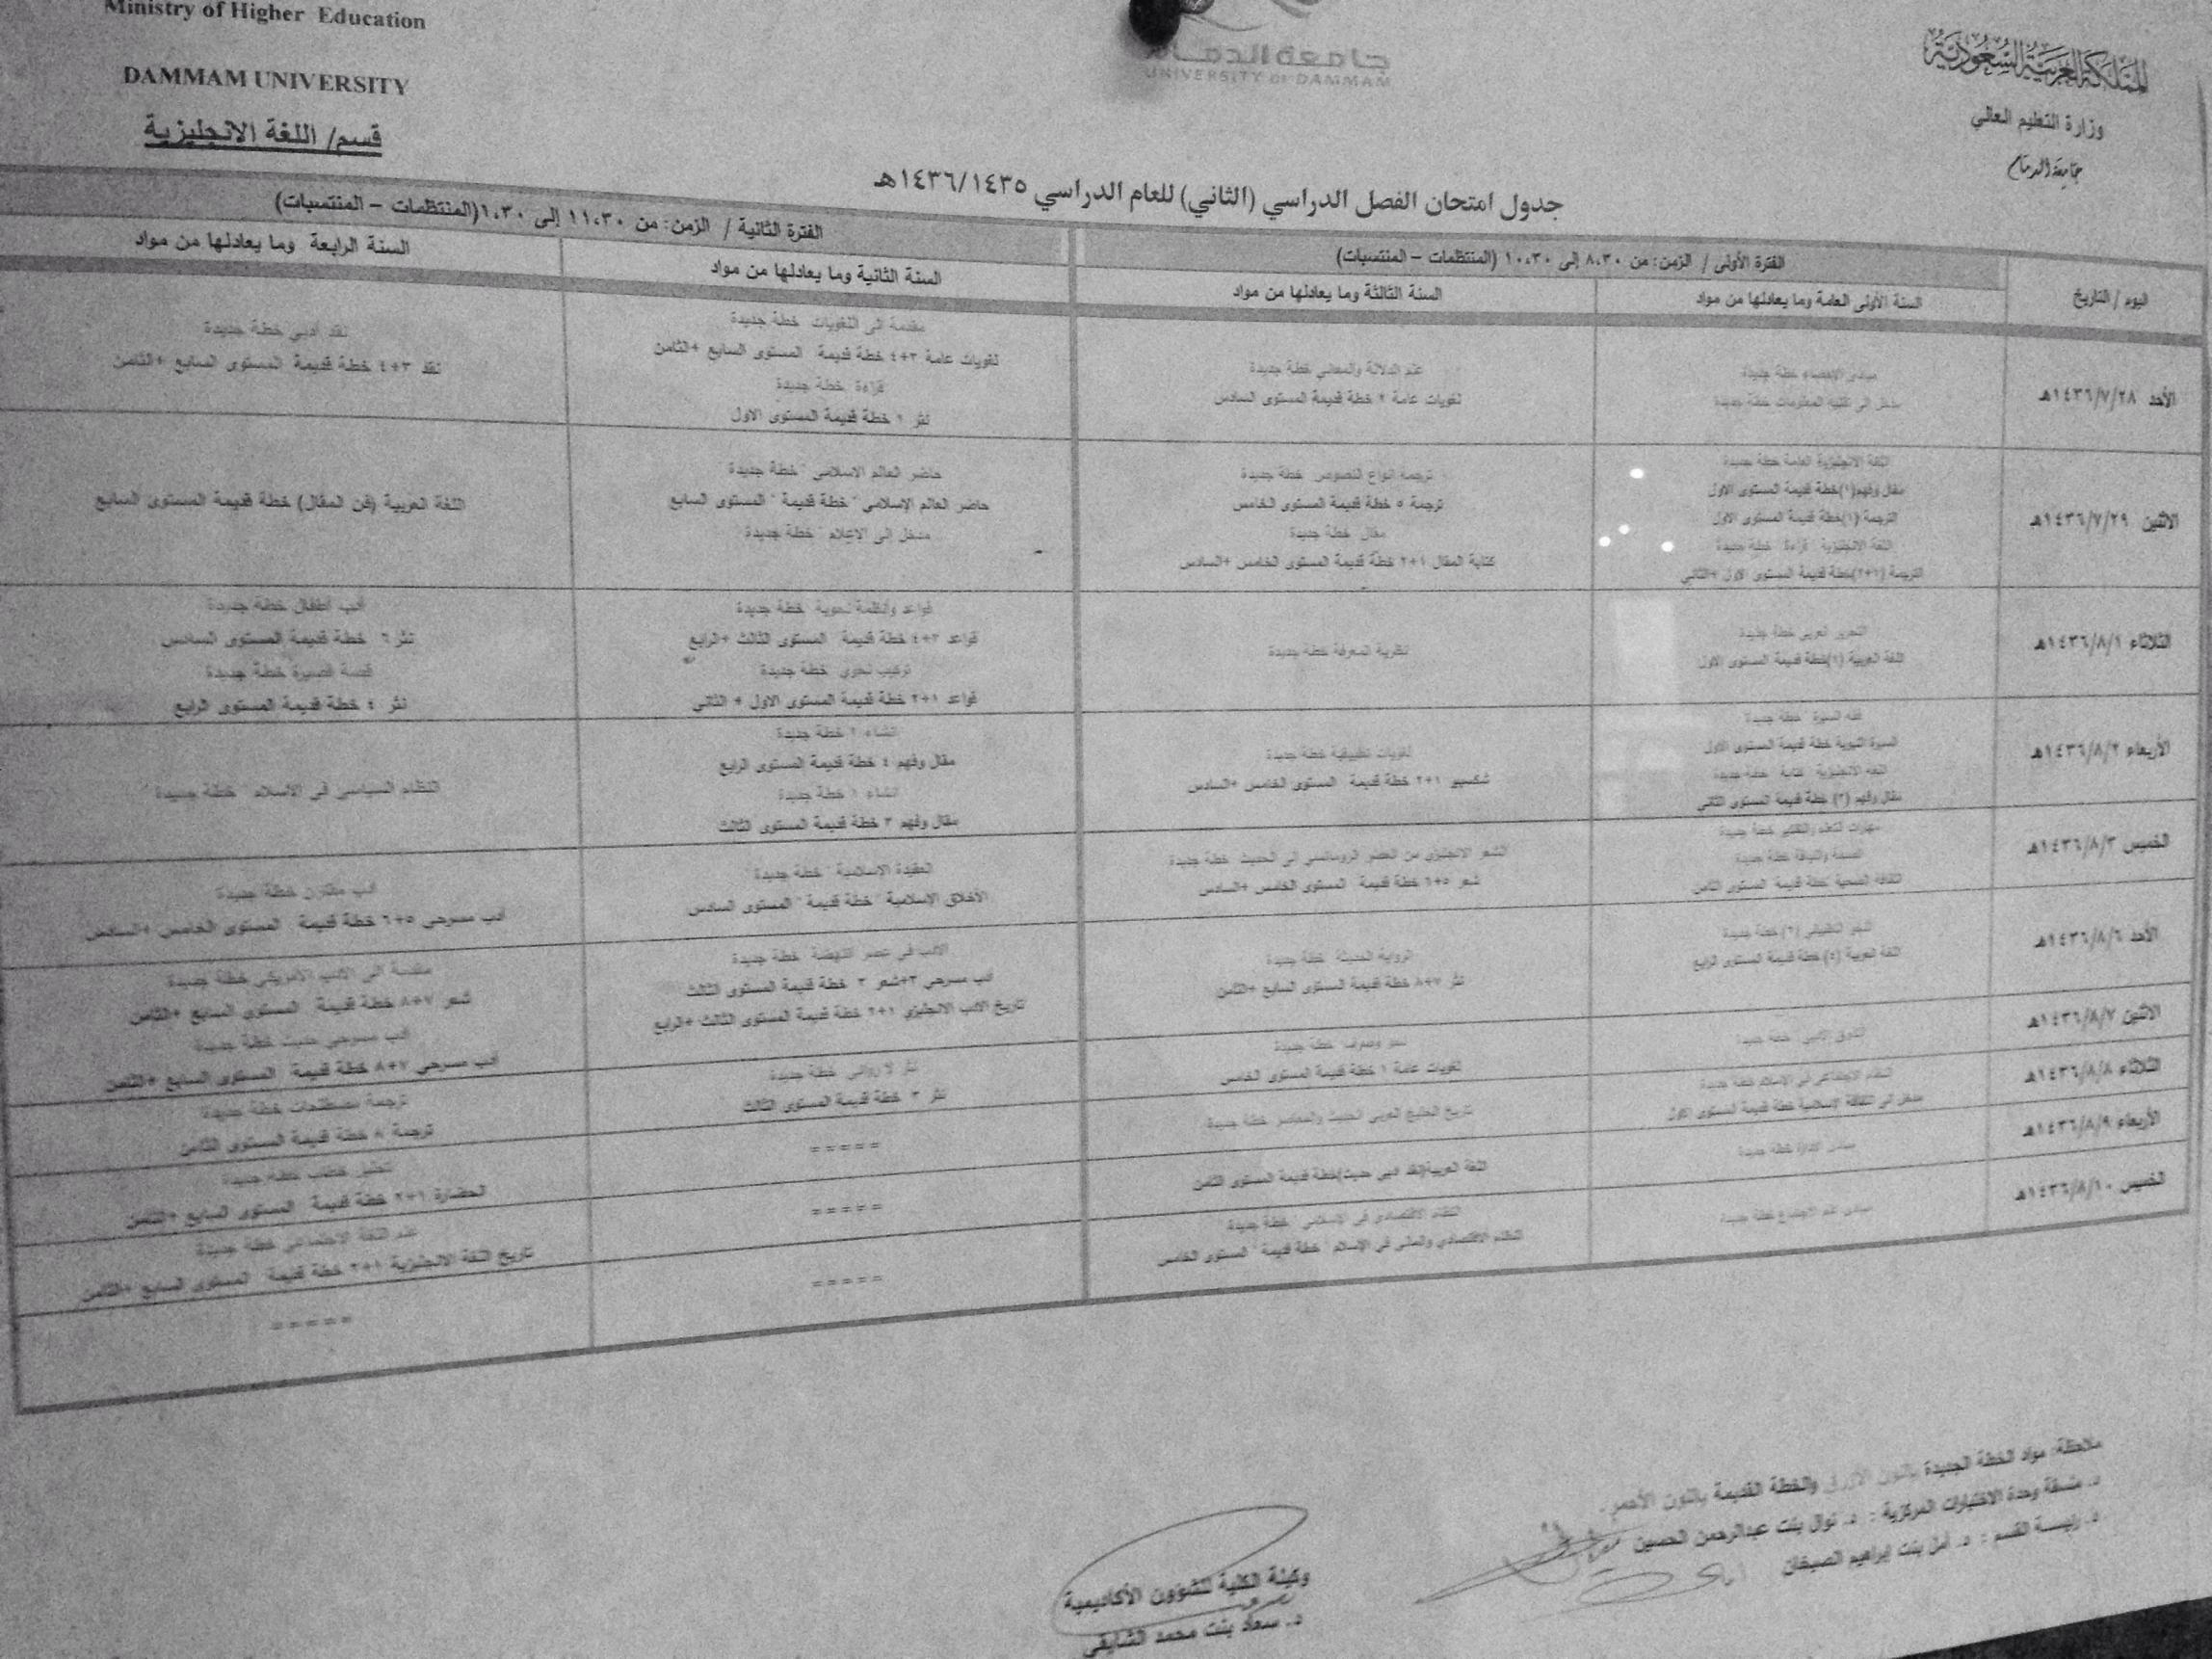 Ministry of Higher Education
DAMMAM UNIVERSITY
قسم/ اللغة الانجليزية
جامعة الدمام
UNIVERSITY OF DAMMAM
المملكة العربية السعودية
وزارة التعليم العالي
جامعة الدمام
جدول امتحان الفصل الدراسي (الثاني) للعام الدراسي ١٤٣٦/١٤٣٥هـ
اليوم / التاريخ
الفترة الأولى / الزمن: من ٨،٣٠ إلى ١٠،٣٠ (المنتظمات – المنتسبات)
الفترة الثانية / الزمن: من ١١،٣٠ إلى ١،٣٠ (المنتظمات – المنتسبات)
السنة الأولى العامة وما يعادلها من مواد
السنة الثالثة وما يعادلها من مواد
السنة الثانية وما يعادلها من مواد
السنة الرابعة وما يعادلها من مواد
الأحد ١٤٣٦/٧/٢٨هـ
مبادئ الإحصاء خطة جديدة
مدخل الى تقنية المعلومات خطة جديدة
علم الدلالة والمعاني خطة جديدة
لغويات عامة ٢ خطة قديمة المستوى السادس
مقدمة الى اللغويات خطة جديدة
لغويات عامة ٣+٤ خطة قديمة المستوى السابع +الثامن
قراءة خطة جديدة
نثر ١ خطة قديمة المستوى الاول
نقد أدبي خطة جديدة
نقد ٣+٤ خطة قديمة المستوى السابع +الثامن
الاثنين ١٤٣٦/٧/٢٩هـ
اللغة الانجليزية العامة خطة جديدة
مقال وفهم(١)خطة قديمة المستوى الاول
الترجمة (١)خطة قديمة المستوى الاول
اللغة الانجليزية قراءة خطة جديدة
الترجمة (١+٢)خطة قديمة المستوى الاول +الثاني
ترجمة انواع النصوص خطة جديدة
ترجمة ٥ خطة قديمة المستوى الخامس
مقال خطة جديدة
كتابة المقال ١+٢ خطة قديمة المستوى الخامس +السادس
حاضر العالم الاسلامي "خطة جديدة"
حاضر العالم الإسلامي "خطة قديمة " المستوى السابع
مدخل الى الإعلام "خطة جديدة
اللغة العربية (فن المقال) خطة قديمة المستوى السابع
الثلاثاء ١٤٣٦/٨/١هـ
التحرير العربي خطة جديدة
اللغة العربية (١)خطة قديمة المستوى الاول
نظرية المعرفة خطة جديدة
قواعد وأنظمة نحوية خطة جديدة
قواعد ٣+٤ خطة قديمة المستوى الثالث +الرابع
تركيب نحوي خطة جديدة
قواعد ١+٢ خطة قديمة المستوى الاول + الثاني
أدب أطفال خطة جديدة
نثر ٦ خطة قديمة المستوى السادس
قصة قصيرة خطة جديدة
نثر ٤ خطة قديمة المستوى الرابع
الأربعاء ١٤٣٦/٨/٢هـ
فقه السيرة خطة جديدة
السيرة النبوية خطة قديمة المستوى الاول
اللغة الانجليزية كتابة خطة جديدة
مقال وفهم (٢) خطة قديمة المستوى الثاني
لغويات تطبيقية خطة جديدة
شكسبير ١+٢ خطة قديمة المستوى الخامس +السادس
انشاء ٢ خطة جديدة
مقال وفهم ٤ خطة قديمة المستوى الرابع
انشاء ١ خطة جديدة
مقال وفهم ٣ خطة قديمة المستوى الثالث
النظام السياسي في الاسلام "خطة جديدة"
الخميس ١٤٣٦/٨/٣هـ
مهارات التعلم والتفكير خطة جديدة
الصحة واللياقة خطة جديدة
الثقافة الصحية خطة قديمة المستوى الثامن
الشعر الانجليزي من العصر الرومانسي الى الحديث خطة جديدة
شعر ٥+٦ خطة قديمة المستوى الخامس +السادس
العقيدة الإسلامية "خطة جديدة"
الأخلاق الإسلامية "خطة قديمة " المستوى السادس
أدب مقارن خطة جديدة
أدب مسرحي ٥+٦ خطة قديمة المستوى الخامس +السادس
الأحد ١٤٣٦/٨/٦هـ
النحو التطبيقي (٢)خطة جديدة
اللغة العربية (٤)خطة قديمة المستوى الرابع
الرواية الحديثة خطة جديدة
نثر ٧+٨ خطة قديمة المستوى السابع +الثامن
الادب في عصر النهضة خطة جديدة
أدب مسرحي ٣+شعر ٣ خطة قديمة المستوى الثالث
تاريخ الادب الانجليزي ١+٢ خطة قديمة المستوى الثالث +الرابع
مقدمة الى الادب الأمريكي خطة جديدة
شعر ٧+٨ خطة قديمة المستوى السابع +الثامن
أدب مسرحي حديث خطة جديدة
أدب مسرحي ٧+٨ خطة قديمة المستوى السابع +الثامن
الاثنين ١٤٣٦/٨/٧هـ
خطة جديدة
نحو وصرف خطة جديدة
لغويات عامة ١ خطة قديمة المستوى الخامس
نثر لا روائي خطة جديدة
نثر ٣ خطة قديمة المستوى الثالث
ترجمة مصطلحات خطة جديدة
ترجمة ٨ خطة قديمة المستوى الثامن
الثلاثاء ١٤٣٦/٨/٨هـ
النظام الاجتماعي في الإسلام خطة جديدة
مدخل الى الثقافة الإسلامية خطة قديمة المستوى الاول
تاريخ الخليج العربي الحديث والمعاصر خطة جديدة
=====
تحليل خطاب خطة جديدة
الحضارة ١+٢ خطة قديمة المستوى السابع +الثامن
الأربعاء ١٤٣٦/٨/٩هـ
مبادئ الادارة خطة جديدة
اللغة العربية(نقد ادبي حديث)خطة قديمة المستوى الثامن
=====
علم اللغة الاجتماعي خطة جديدة
تاريخ اللغة الانجليزية ١+٢ خطة قديمة المستوى السابع +الثامن
الخميس ١٤٣٦/٨/١٠هـ
مبادئ علم الاجتماع خطة جديدة
النظام الاقتصادي في الإسلامي "خطة جديدة"
النظام الاقتصادي والمالي في الإسلام "خطة قديمة " المستوى الخامس
=====
=====
ملاحظة: مواد الخطة الجديدة باللون الأزرق والخطة القديمة باللون الأحمر.
د. منسقة وحدة الاختبارات المركزية : د. نوال بنت عبدالرحمن الحسين
د. رئيسة القسم : د. أمل بنت إبراهيم الصيخان
وكيلة الكلية للشؤون الأكاديمية
د. سعاد بنت محمد الشايقي